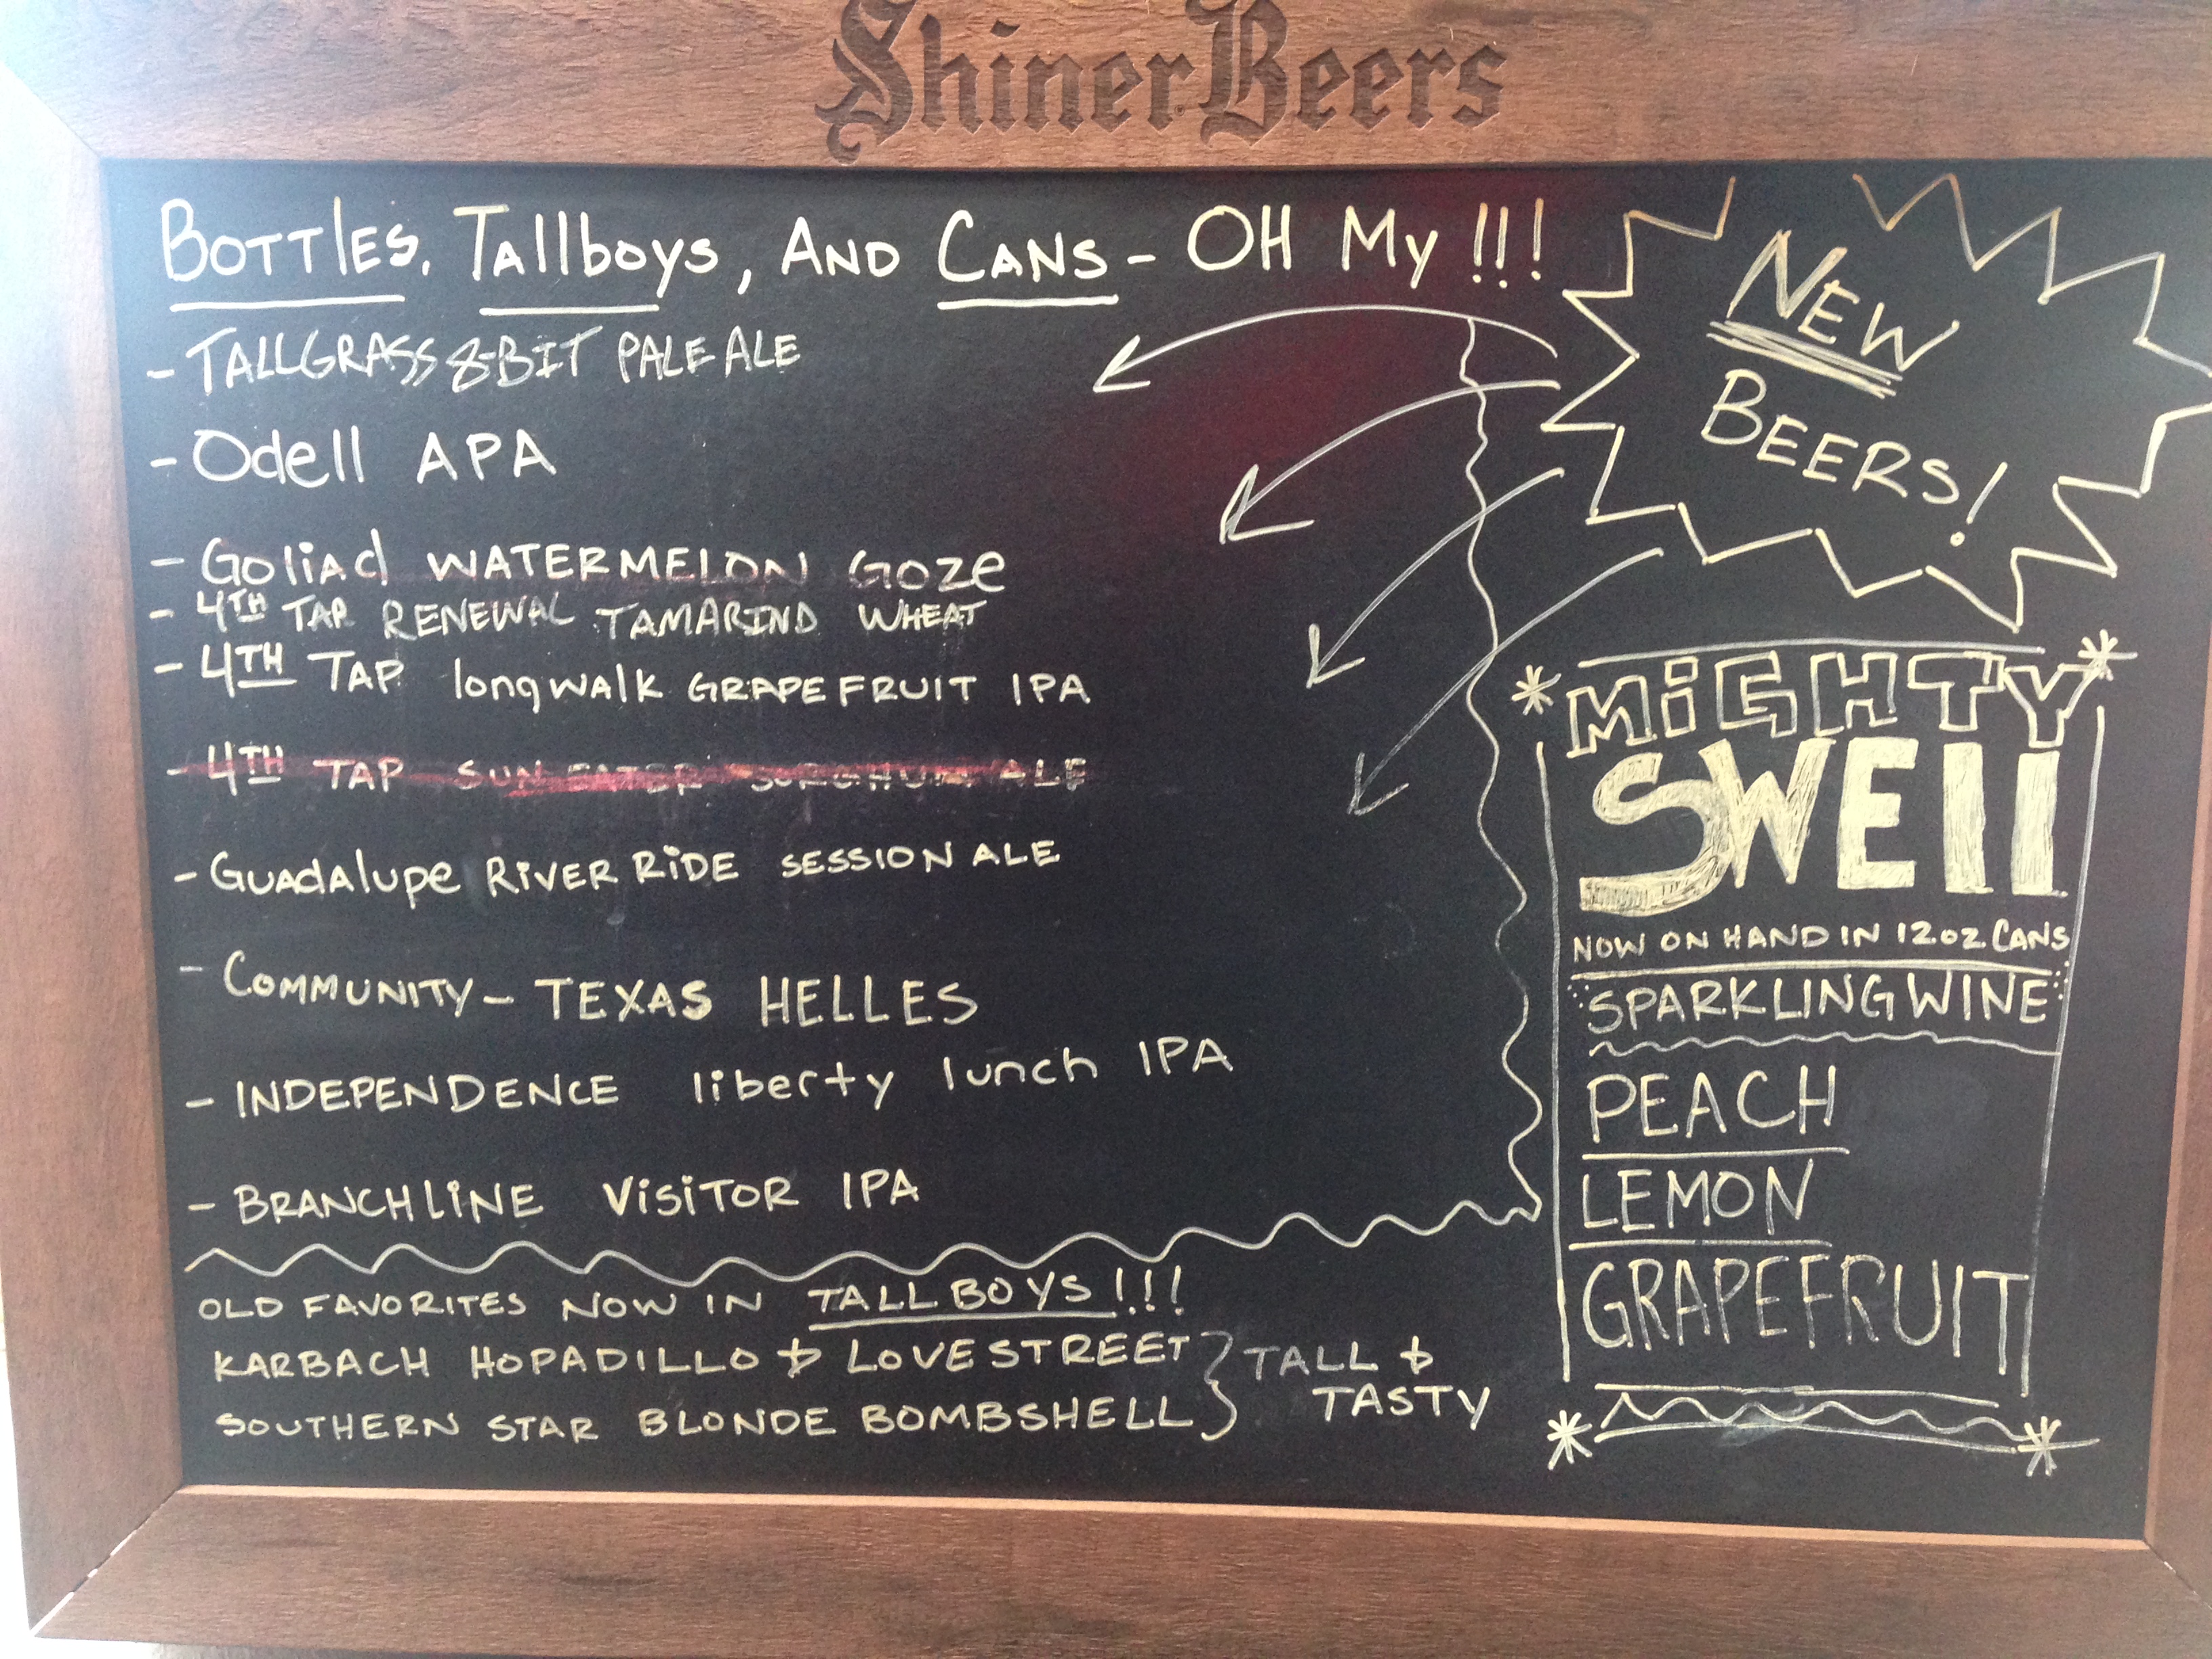 Shiner Beers
BOTTlES, TAllboys, AND CANS - OH My!!!
- TALLGRASS 8-BIT PALE ALE
- Odell APA
- GoliAd WATERMELON GOZe
- 4TH TAP RENEWAL TAMARIND WHEAT
- 4TH TAP longwAlk GRAPEFRUIT IPA
- 4TH TAP SUN EATER SORGHUM ALE
- GuAdAlupe RiVER RiDE SESSION ALE
- COMMUNITY - TEXAS HELLES
- INDEPENDENCE liberty lunch IPA
- BRANCHLINE ViSiTOR IPA
OLD FAVORITES NOW IN TALL BOYS!!!
KARBACH HOPADILLO & LOVE STREET
SOUTHERN STAR BLONDE BOMBSHELL
TALL &
TASTY
NEW
BEERS!
MiGHTY
SWEll
NOW ON HAND IN 12 OZ. CANS
SPARKLING WINE
PEACH
LEMON
GRAPEFRUIT